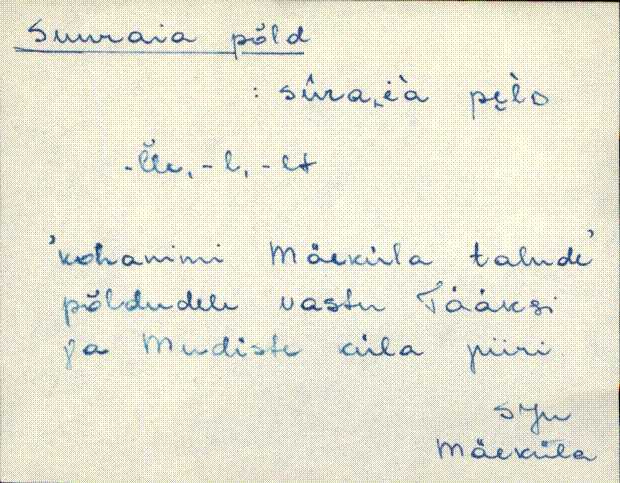 Suuraia põld
: sûra,ià pe̮lD
-l̆le, -l, -lt
'kohanimi Mäeküla talude'
põldudele vastu Tääksi
ja Mudiste küla piiri
SJn
Mäeküla